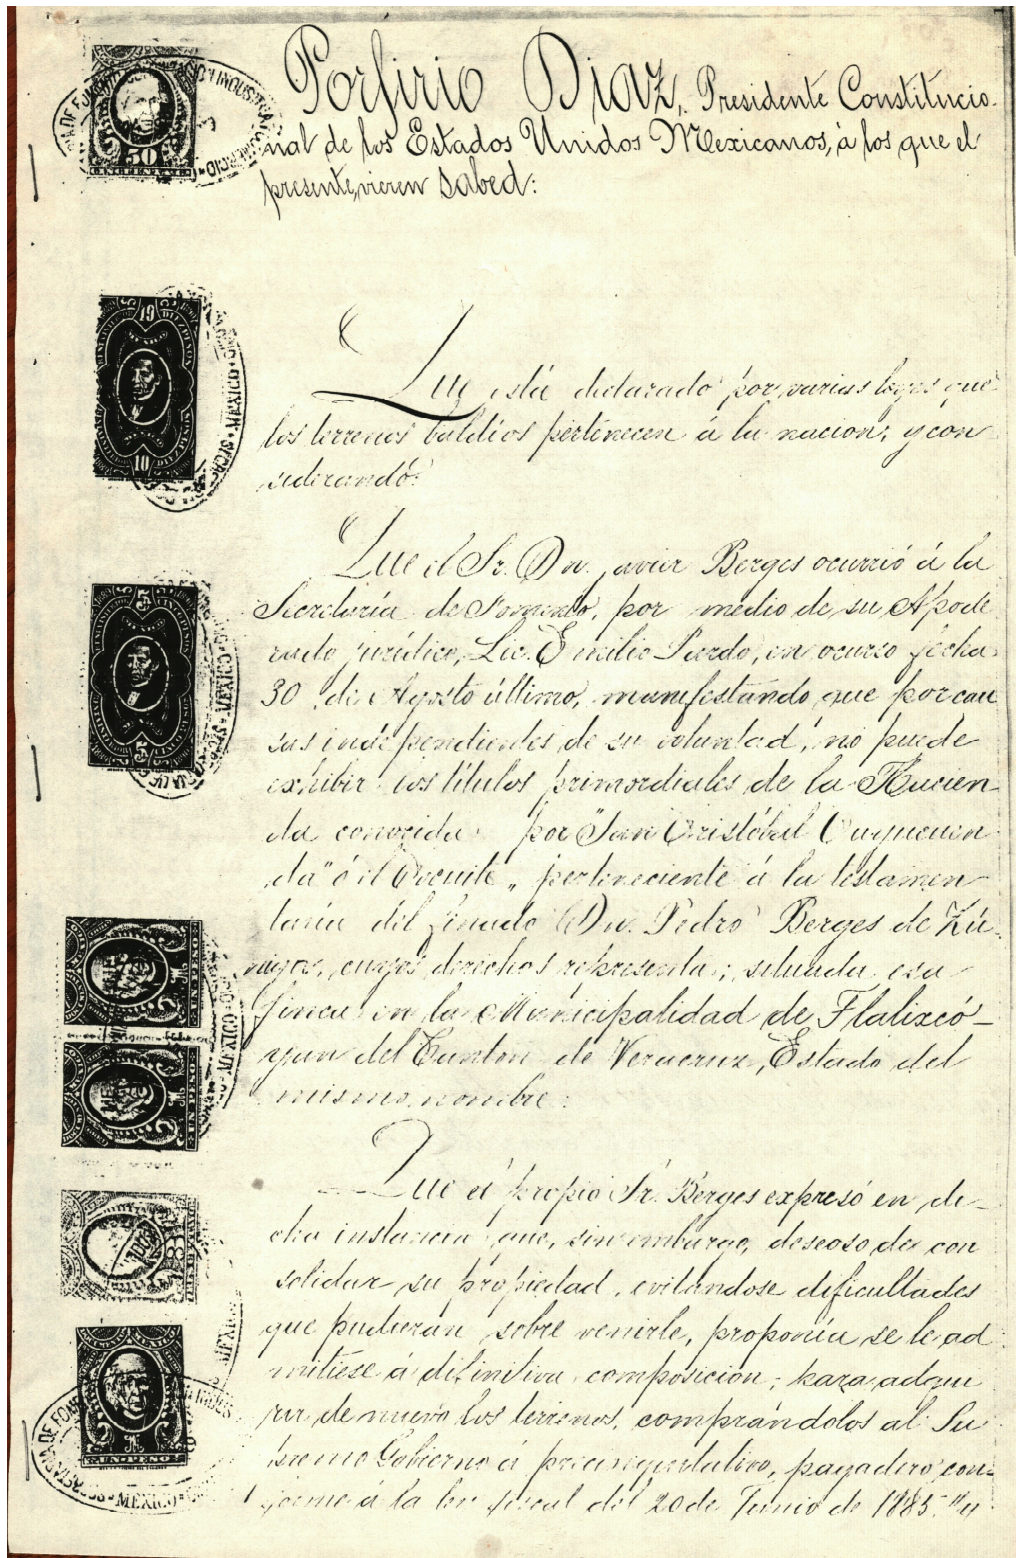 Porfirio Diaz, Presidente Constitucio-
nal de los Estados Unidos Mexicanos, á los que el
presente vieren sabed:
Que está declarado por varias leyes que
los terrenos baldíos pertenecen á la nacion, y con
siderando:
Que el Sr. Dn. Javier Berges ocurrió á la
Secretaría de Fomento, por medio de su Apode
rado jurídico, Lic. Emilio Pardo, en ocurso fecha
30 de Agosto último, manifestando que por cau
sas independientes de su voluntad, no puede
exhibir los títulos primordiales de la Hacien
da conocida por "San Cristóbal
da" ó el Ocuite" perteneciente á la testamen
taría del finado Dn. Pedro Berges de Zú-
ñiga, cuyos derechos representa; situada esa
finca en la Municipalidad de Tlalixcó-
yan del Canton de Veracruz, Estado del
mismo nombre:
Que el propio Sr. Berges expresó en di-
cha instancia que, sin embargo, deseoso de con
solidar su propiedad, evitándose dificultades
que pudieran sobre venirle, proponía se le ad
mitiese á difinitiva composicion, para adqui
rir de nuevo los terrenos, comprándolos al Su
premo Gobierno á precio equitativo, pagadero con-
forme á la ley fiscal del 20 de Junio de 1885. "y
50
19
10
5
5
MEXICO
MEXICO
MEXICO
UN PESO
UN PESO
MEXICO